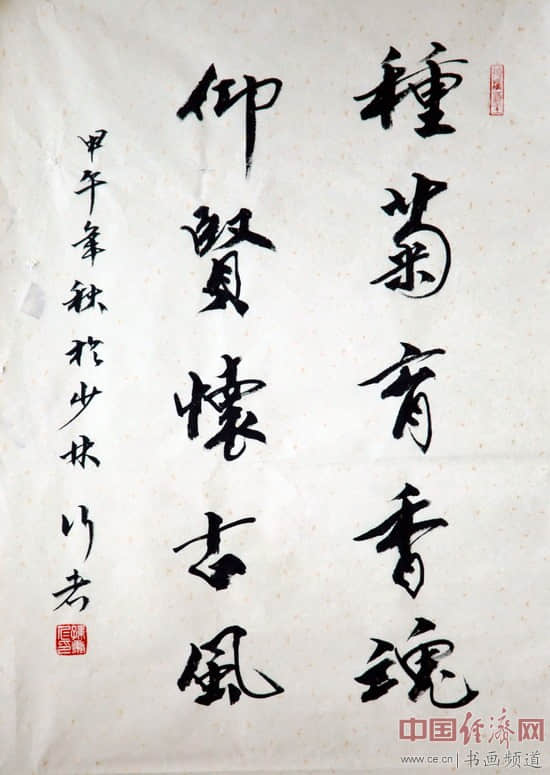 種菊育香魂
仰賢懷古風
甲午年秋於少林行者
中国经济网
www.ce.cn|书画频道